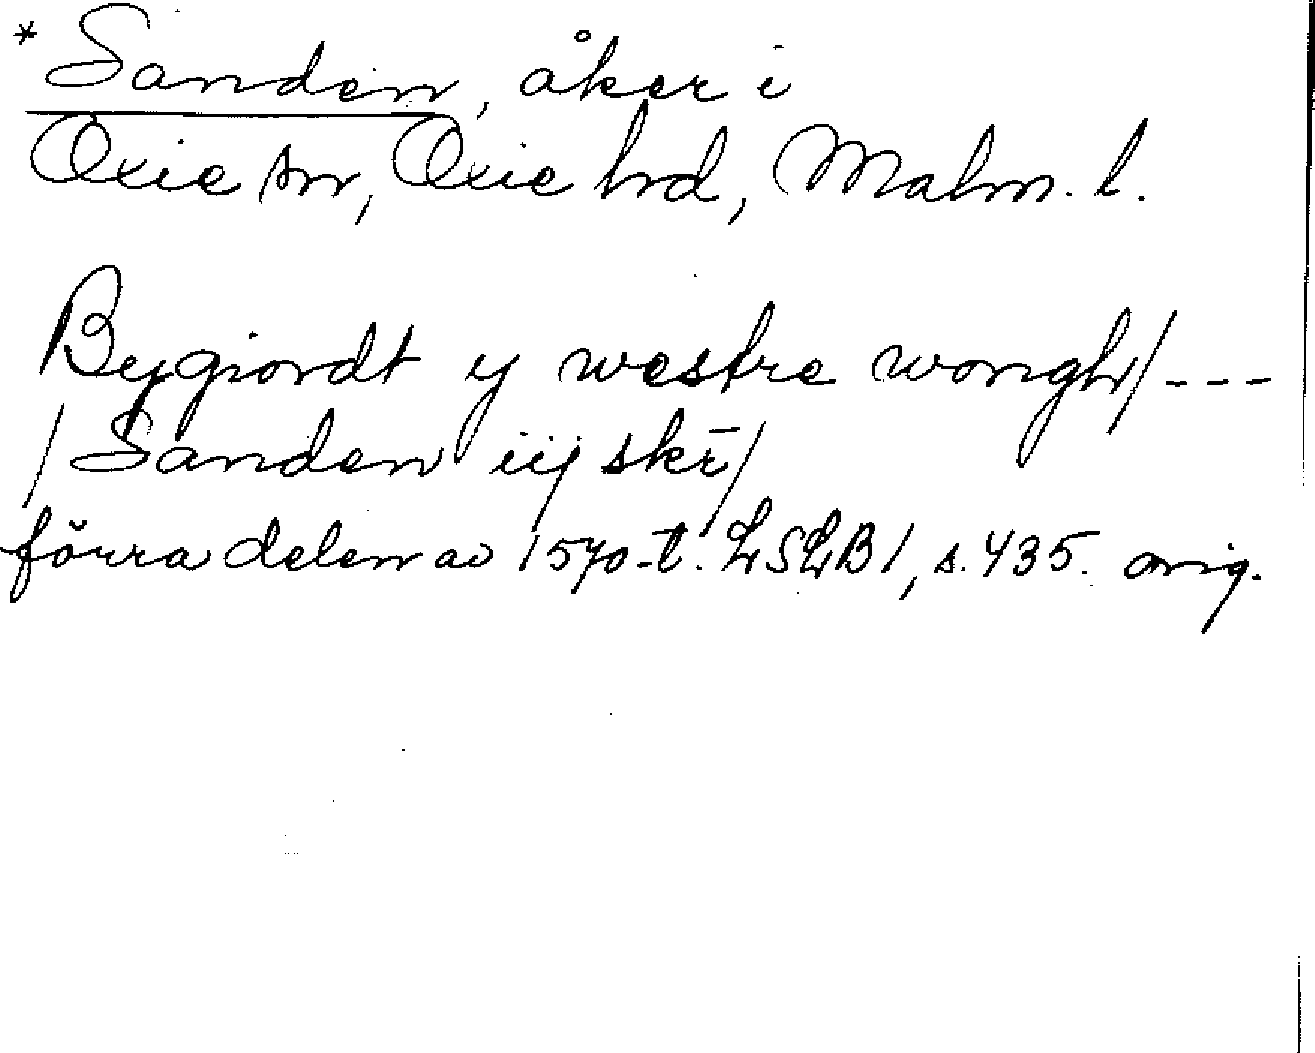 * Sanden, åker i
Oxie sn, Oxie hrd, Malm. l.
Bygiordt y westre wongh/---
/Sanden iij skē/
förra delen av 1570-t. LSLB1, s. 435. orig.